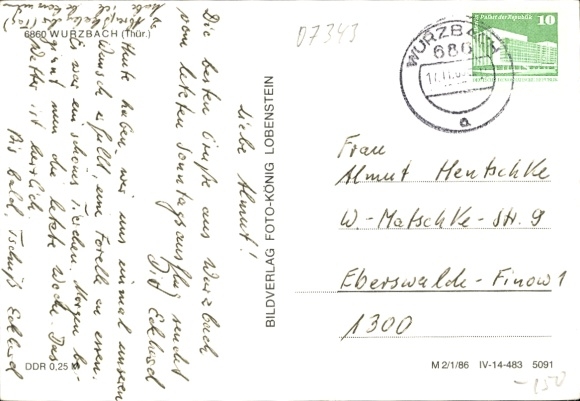 6860 WURZBACH (Thür.)
07343
Palast der Republik 10
WURZBACH
686
17.11.
a
Liebe Almut!
Die besten Grüße aus Wurzbach
vom letzten Sonntagsausflug sendet
Eckhard
Heute haben wir uns einmal unseren
Wunsch erfüllt eine Forelle zu essen.
Es war ein schönes Morgen be-
ginnt nun die letzte Woche. Das
Wetter ist herrlich.
Bis bald, Tschüß Eckhard
BILDVERLAG FOTO-KÖNIG LOBENSTEIN
Frau
Almut Hentschke
W.-Matschke-Str. 9
Eberswalde-Finow 1
1300
DDR 0,25 M
M 2/1/86 IV-14-483 5091
-150